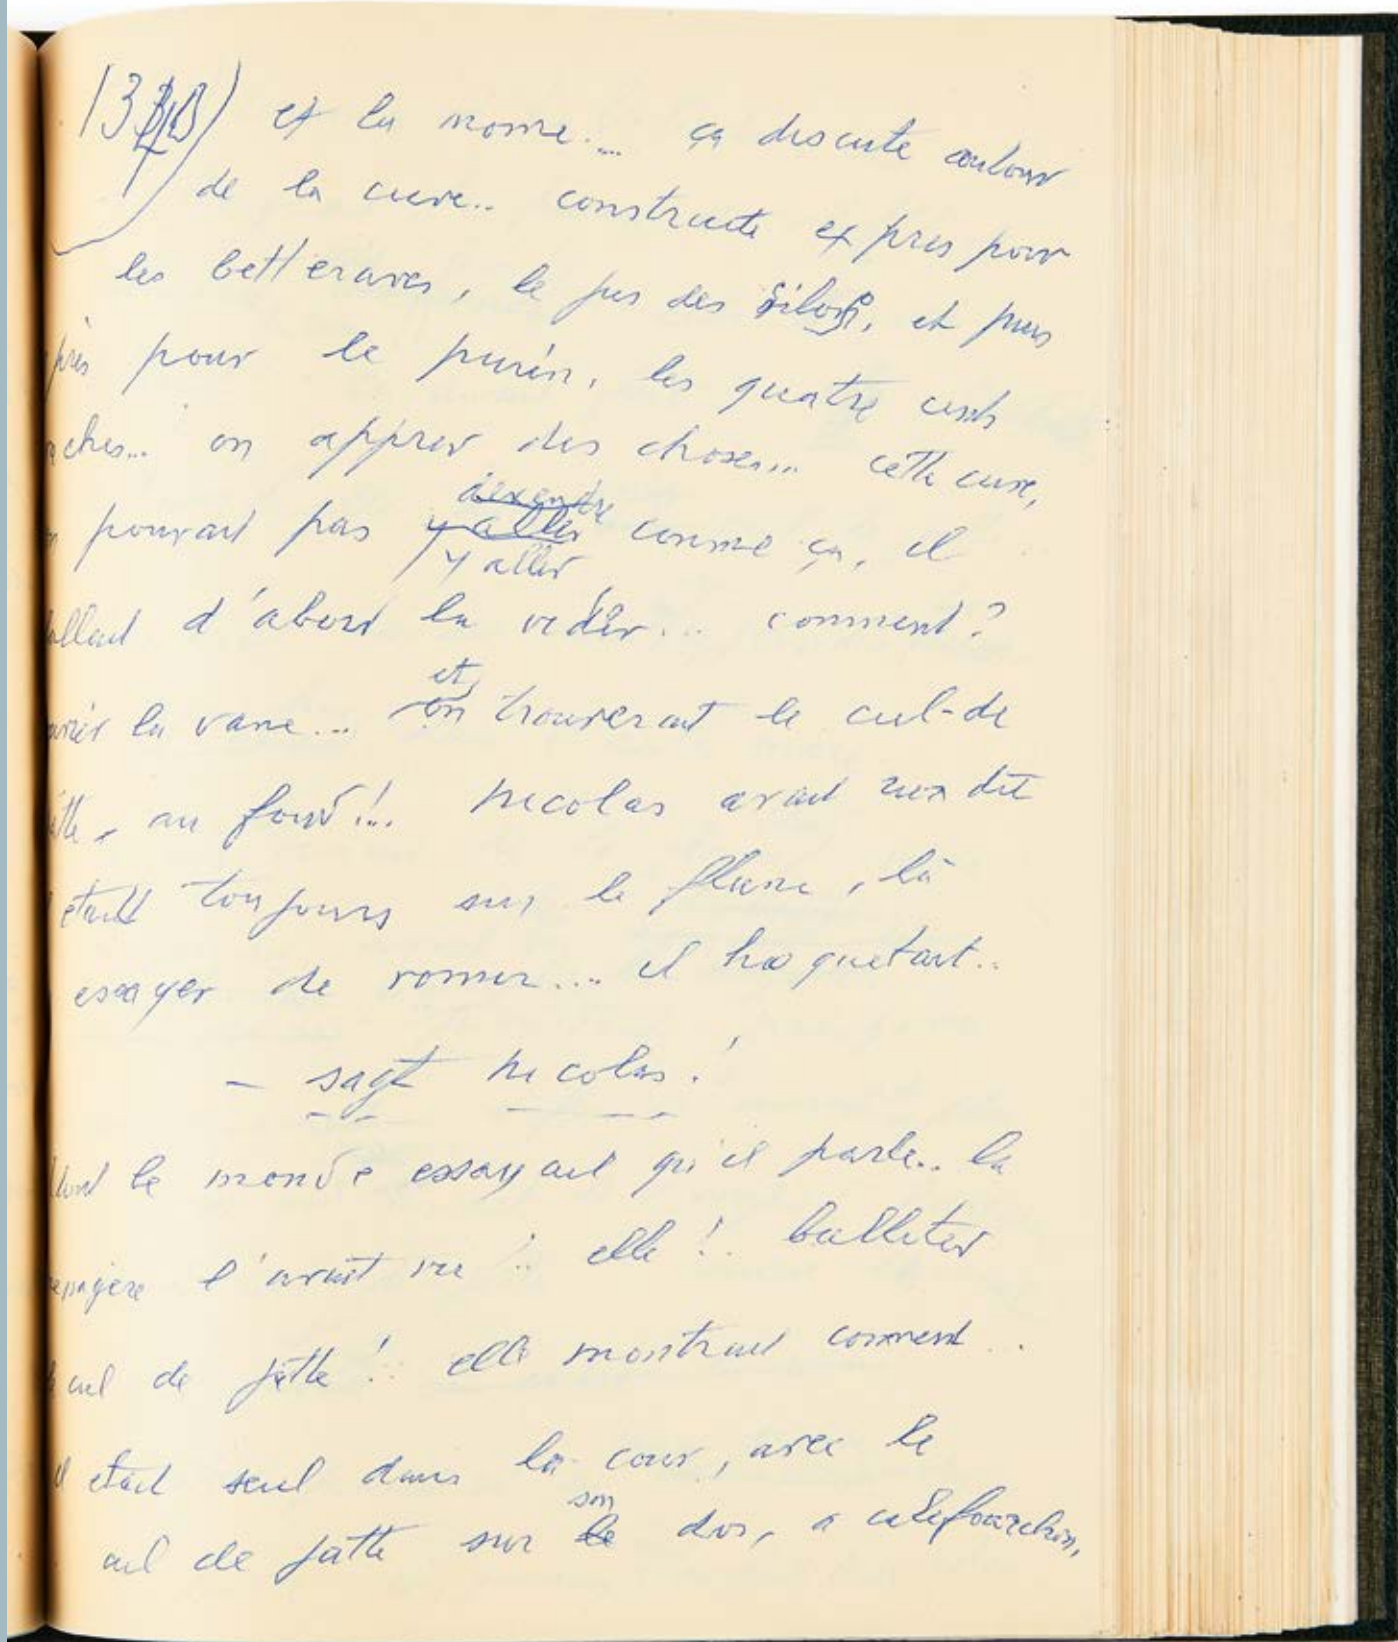 et la mome... ça discute autour
de la cuve.. construite exprès pour
les betteraves, le jus des silos, et puis
près pour le purin, les quatre cents
aches... on apprend des choses... cette cuve,
pouvait pas y aller descendre y aller comme ça, il
allait d'abord la vider... comment?
la vane... et on trouverait le cul-de
atte, au fond!.. Nicolas avait rien dit
était toujours sur le flanc, là
essayer de vomir.... il hoquetait..
– sagt Nicolas!
tout le monde essayait qu'il parle.. la
l'avait vu!.. elle!.
cul de jatte!.. elle montrait comment..
il était seul dans la cour, avec le
cul de jatte sur le son dos, a califourchon,